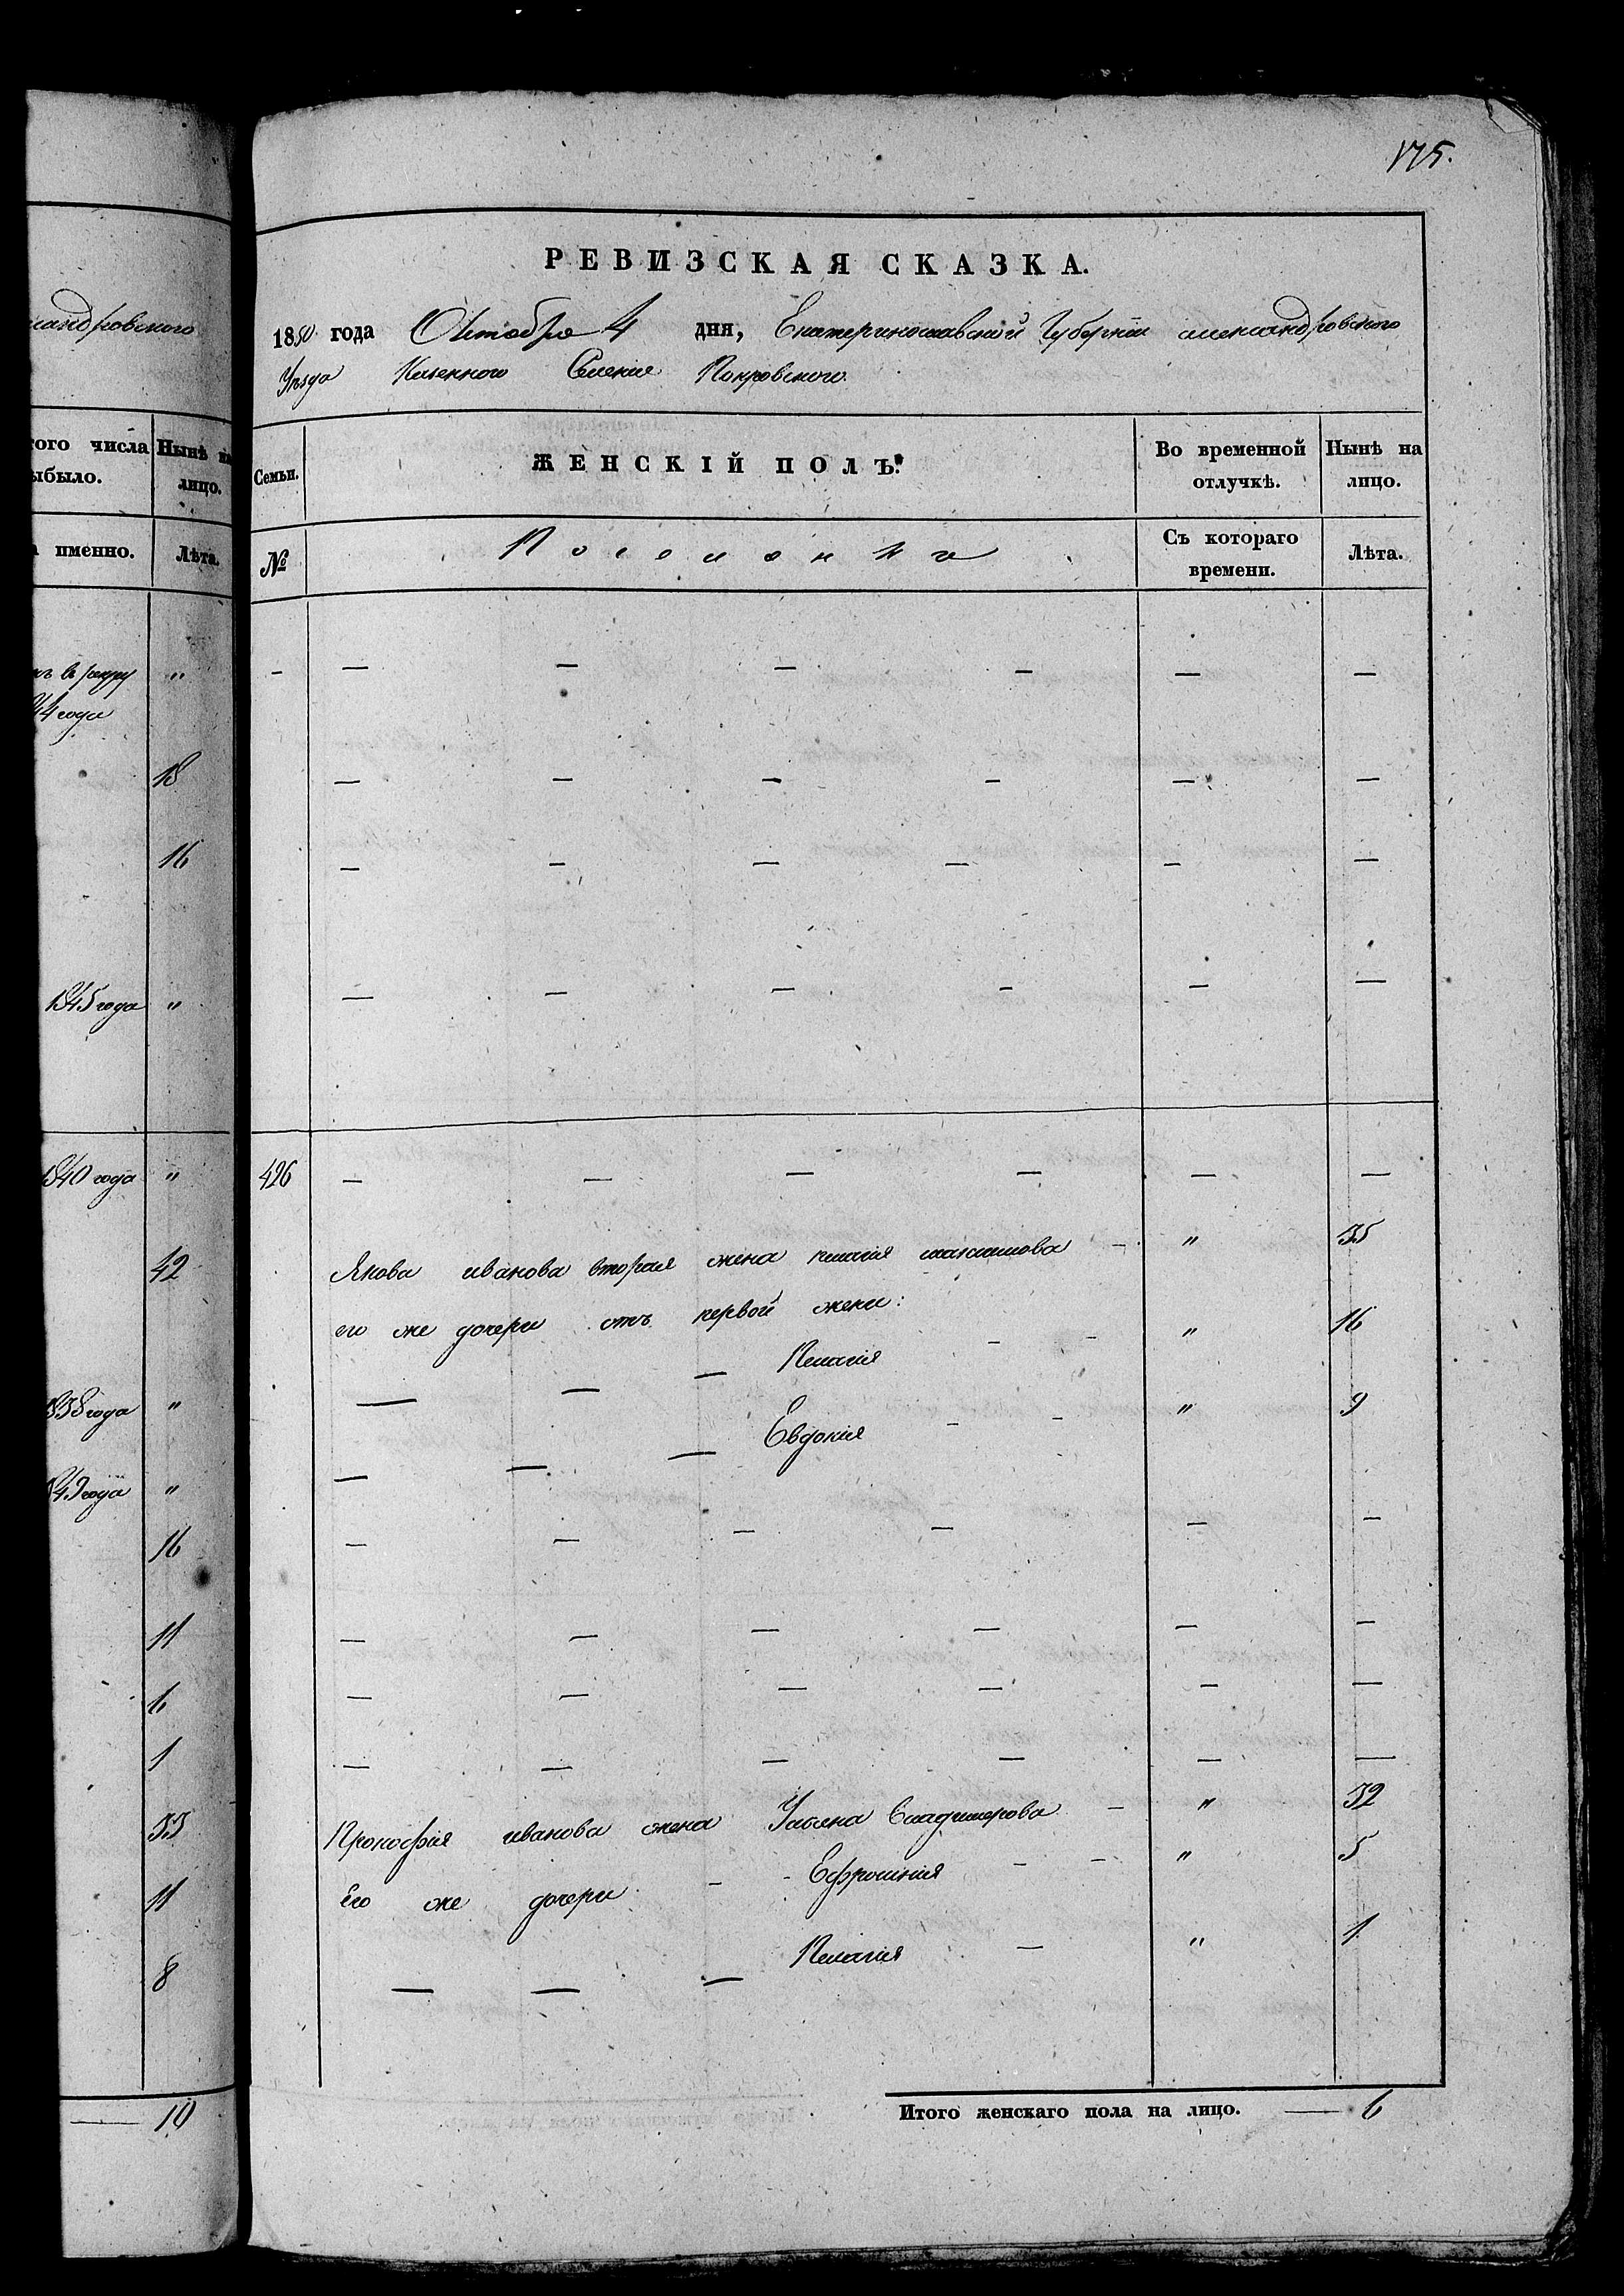 175.
РЕВИЗСКАЯ СКАЗКА.
1850 года Октября 4 дня, Екатеринославской Губернии александровского
Уезда Казенного Селения Покровского.
андровского
того числа Нынѣ на
ыбыло. лицо.
а именно. Лѣта.
Семьи. ЖЕНСКІЙ ПОЛЪ. Во временной Нынѣ на
отлучкѣ. лицо.
№ Поселянки Съ котораго Лѣта.
времени.
въ рекру "
44 года
18
16
1845 года "
1840 года "
42
1838 года "
"
16
11
6
1
33
11
8
10
426 — — — — — —
Якова иванова вторая жена пелагия максимова - " 35
его же дочери отъ первой жени:
Пелагия - - " 16
— — — Евдокия - - " 9
— — —
Прокофия иванова жена Улияна Владимерова - " 32
Его же дочери - - Ефросиния - - " 5
— — — Пелагия — " 1
Итого женскаго пола на лицо. — 6